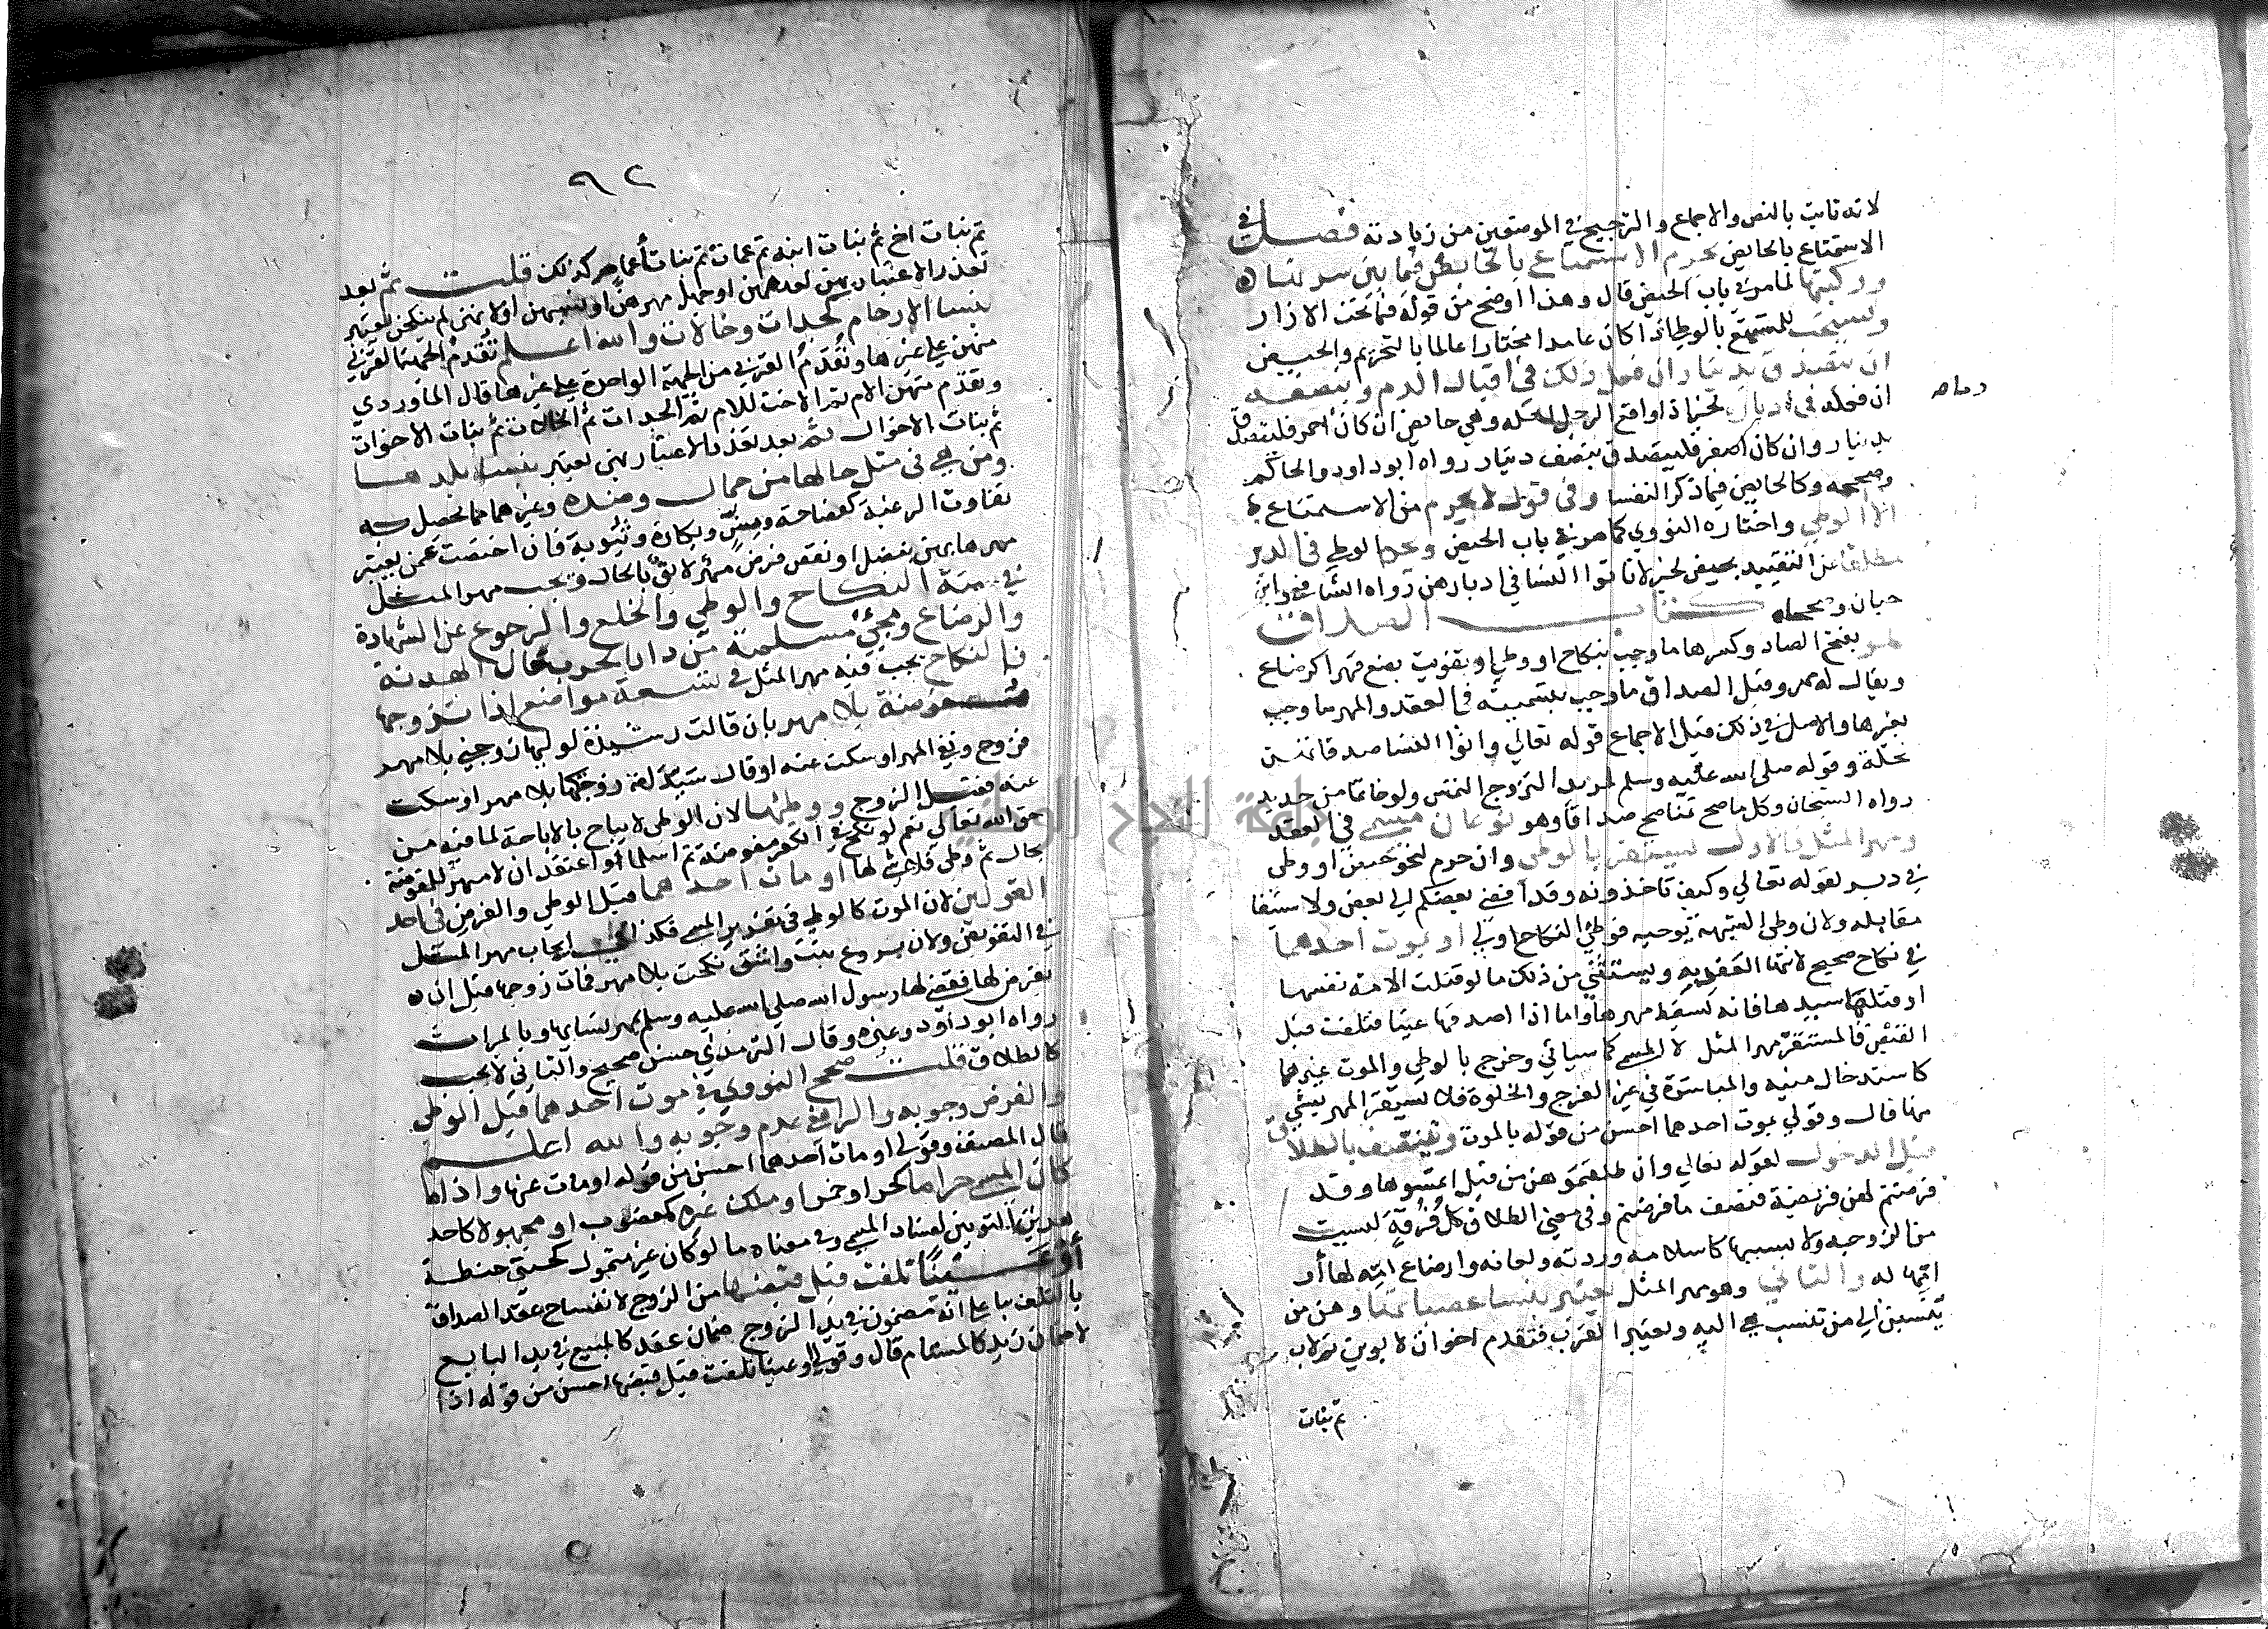 لانه ثابت بالنص والاجماع والترجيح في الموضعين من زيادته فصل في
الاستمتاع بالحايض يحرم الاستمتاع بالحايض فيما بين سرتها
وركبتها لما مر في باب الحيض قال وهذا اوضح من قوله فيما تحت الازار
ويستحب للمتمتع بالوطي اذا كان عامدا مختارا عالما بالتحريم والحيض
ان يتصدق بدينار ان فعل ذلك في اقبال الدم وبنصفه
ان فعله في ادباره لخبر اذا واقع الرجل اهله وهي حايض ان كان احمر فليتصدق
بدينار وان كان اصفر فليتصدق بنصف دينار رواه ابو داود والحاكم
وصححه وكالحايض فيما ذكر النفسا وفي قول لا يحرم من الاستمتاع بها
الا الوطي واختاره النووي كما مر في باب الحيض ويحرم الوطي في الدبر
مطلقا عن التقييد بحيض لخبر لا تاتوا النسا في ادبارهن رواه الشافعي وابن
حبان وصححاه كتاب الصداق
هو بفتح الصاد وكسرها ما وجب بنكاح او وطي او بتفويت بضع قهرا كرضاع
ويقال له مهر وقيل الصداق ما وجب بتسمية في العقد والمهر ما وجب
بغيرها والاصل في ذلك قبل الاجماع قوله تعالي واتوا النسا صدقاتهن
نحلة وقوله صلي الله عليه وسلم لمريد التزوج التمس ولو خاتما من حديد
رواه الشيخان وكل ما صح ثمنا صح صداقا وهو نوعان مسمي في العقد
ومهر المثل فالاول يستقر بالوطي وان حرم لنحو حيض او وطي
في دبر لقوله تعالي وكيف تاخذونه وقد افضي بعضكم الي بعض ولاستيفا
مقابله ولان وطي الشبهة يوجبه فوطي النكاح اولي او بموت احدهما
في نكاح صحيح لانتها العقد به ويستثني من ذلك ما لو قتلت الامة نفسها
او قتلها سيدها فانه يسقط مهرها واما اذا اصدقها عينا فتلفت قبل
القبض فالمستقر مهر المثل لا المسمي كما سيأتي وخرج بالوطي والموت غيرهما
كاستدخال منيه والمباشرة في غير الفرج والخلوة فلا يستقر المهر بشي
منها قال وقولي بموت احدهما احسن من قوله بالموت ويتنصف بالطلاق
قبل الدخول لقوله تعالي وان طلقتموهن من قبل ان تمسوهن وقد
فرضتم لهن فريضة فنصف ما فرضتم وفي معني الطلاق كل فرقة ليست
من الزوجة ولا بسببها كاسلامه وردته ولعانه وارضاع امه لها أو
امها له والثاني وهو مهر المثل يعتبر بنسا عصباتها وهن من
ينسبن الي من تنسب هي اليه ويعتبر القرب فتقدم اخوات لابوين ثم لاب
ثم بنات
٩٢
ثم بنات اخ ثم بنات ابنه ثم عمات ثم بنات أعمام كذلك قلت ثم بعد
تعذر الاعتبار بهن لعدمهن او جهل مهرهن او نسبهن اولانهن لم ينكحن يعتبر
بنسا الارحام كجدات وخالات والله اعلم تقدم الجهة القربي
منهن علي غيرها وتقدم القربي من الجهة الواحدة علي غيرها قال الماوردي
وتقدم منهن الام ثم الاخت للام ثم الجدات ثم الخالات ثم بنات الاخوات
ثم بنات الاخوال ثم بعد تعذر الاعتبار بهن يعتبر بنسا بلدها
ومن هي في مثل حالها من جمال وضده وغيرهما مما يحصل به
تفاوت الرغبة كفصاحة وسن وبكارة وثيوبة فان اختصت عمن يعتبر
مهرها بهن بفضل او نقص فرض مهر لائق بالحال ويجب مهر المثل
في ستة النكاح والوطي والخلع والرجوع عن الشهادة
والرضاع ومجئ مسلمة من دار الحرب حال الهدنة
فالنكاح يجب فيه مهر المثل في تسعة مواضع اذا تزوجها
مفوضة بلا مهر بان قالت رشيدة لوليها زوجني بلا مهر
فزوج ونفي المهر او سكت عنه او قال سيد امة زوجتكها بلا مهر او سكت
عنه فقبل الزوج ووطئها لان الوطي لا يباح بالاباحة لما فيه من
حق الله تعالي نعم لو نكح في الكفر مفوضة ثم اسلما او اعتقد ان لا مهر للمفوضة
بحال ثم وطي فلا شي لها او مات احدهما قبل الوطي والفرض في احد
القولين لان الموت كالوطي في تقرير المسمي فكذا في ايجاب مهر المثل
في التفويض ولان بروع بنت واشق نكحت بلا مهر فمات زوجها قبل ان
يفرض لها فقضي لها رسول الله صلي الله عليه وسلم بمهر نسايها وبالميراث
رواه ابو داود وغيره وقال الترمذي حسن صحيح والثاني لا يجب
كالطلاق قلت صحح النووي في موت احدهما قبل الوطي
والفرض وجوبه والرافعي عدم وجوبه والله اعلم
قال المصنف وقولي او مات احدهما احسن من قوله او مات عنها واذا
كان المسمي حراما كحر او خمر او ملك غيره كمغصوب او مجهولا كاحد
عبدين لفساد المسمي وفي معناه ما لو كان غير متمول كحبتي حنطة
أو عينا تلفت قبل قبضها من الزوج لانفساح عقد الصداق
بالتلف بنا علي انه مضمون في يد الزوج ضمان عقد كالمبيع في يد البايع
لا ضمان يد كالمستام قال وقولي او عينا تلفت قبل قبضها احسن من قوله اذا